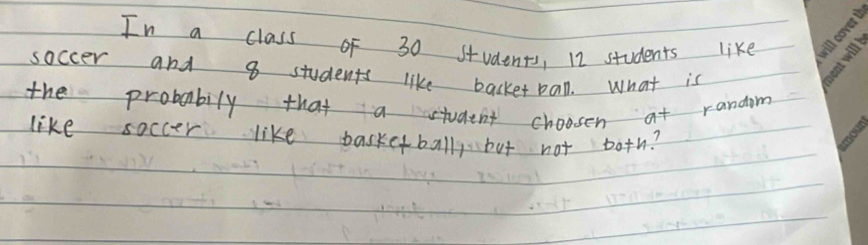 In a class of 30 students, 12 students like
soccer and 8 students like basket ball. What is
the probabily that a student choosen at random
like soccer like basketball, but not both?
will cover the
ment will be
amount